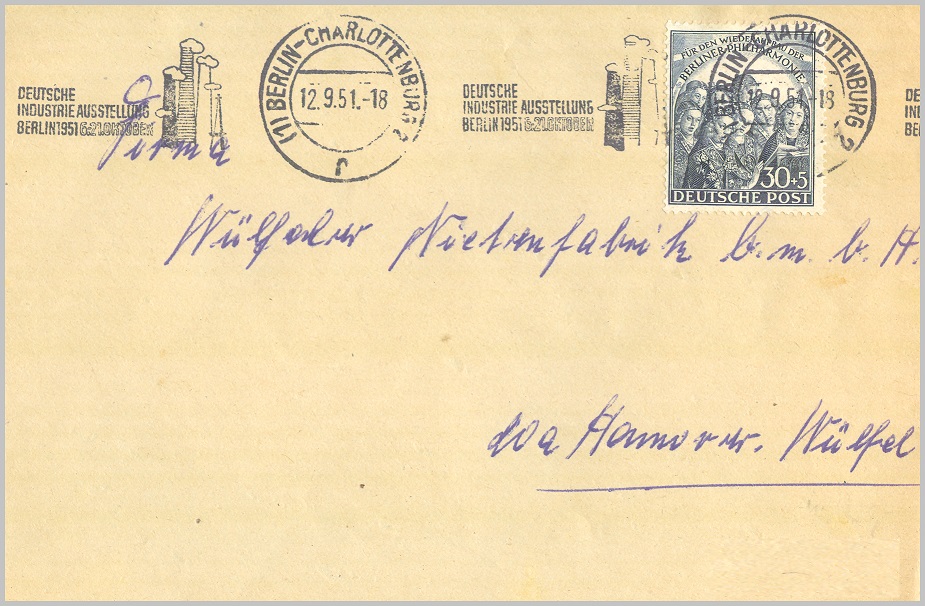 DEUTSCHE
INDUSTRIE AUSSTELLUNG
BERLIN 1951 6.-21.OKTOBER
(1) BERLIN-CHARLOTTENBURG 2
12.9.51.-18
r
DEUTSCHE
INDUSTRIE AUSSTELLUNG
BERLIN 1951 6.-21.OKTOBER
(1) BERLIN-CHARLOTTENBURG 2
12.9.51.-18
FÜR DEN WIEDERAUFBAU DER
BERLINER PHILHARMONIE
30+5
DEUTSCHE POST
DE
IN
BE
Firma
Wülfeler Nietenfabrik G.m.b.H.
Hannover. Wülfel